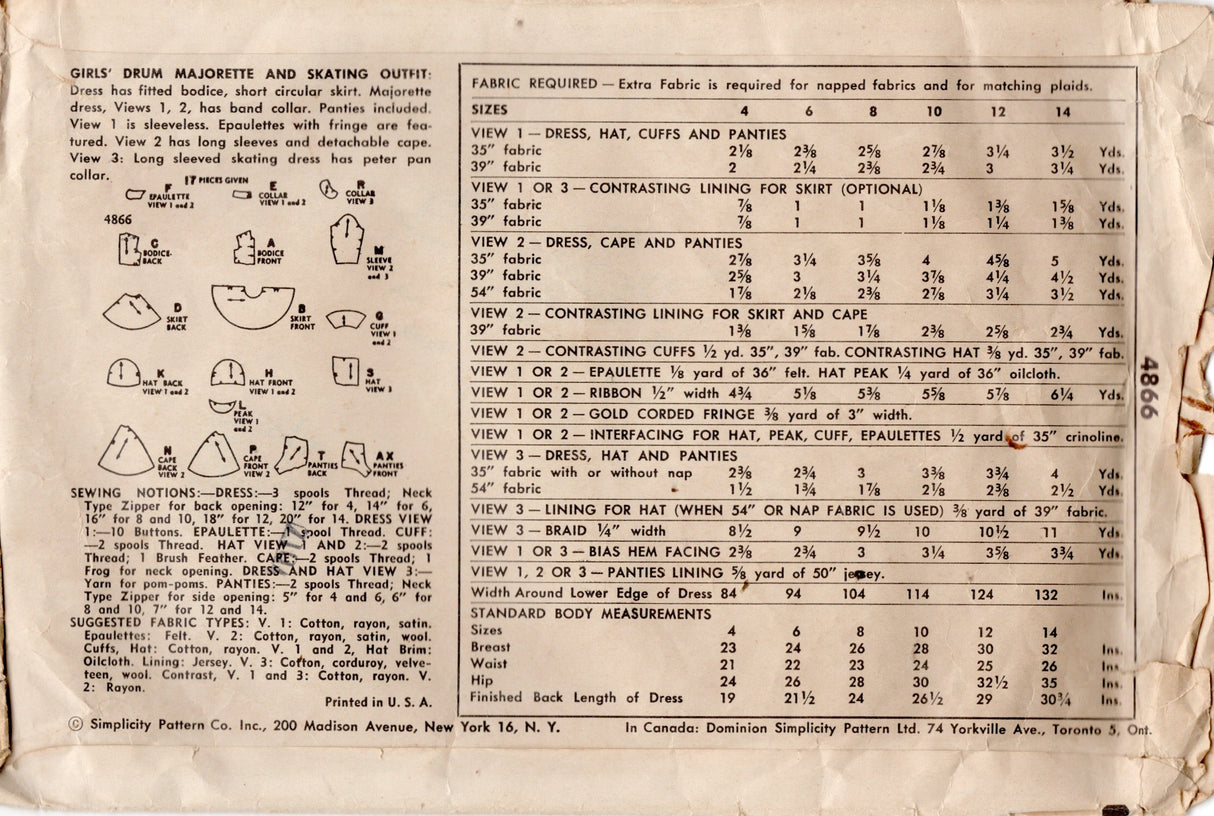 GIRLS' DRUM MAJORETTE AND SKATING OUTFIT:
Dress has fitted bodice, short circular skirt. Majorette
dress, Views 1, 2, has band collar. Panties included.
View 1 is sleeveless. Epaulettes with fringe are fea-
tured. View 2 has long sleeves and detachable cape.
View 3: Long sleeved skating dress has peter pan
collar.
17 PIECES GIVEN
F EPAULETTE VIEW 1 and 2
E COLLAR VIEW 1 and 2
R COLLAR VIEW 3
4866
C BODICE-BACK
A BODICE FRONT
M SLEEVE VIEW 2 and 3
D SKIRT BACK
B SKIRT FRONT
G CUFF VIEW 1 and 2
K HAT BACK VIEW 1 and 2
H HAT FRONT VIEW 1 and 2
S HAT VIEW 3
L PEAK VIEW 1 and 2
N CAPE BACK VIEW 2
P CAPE FRONT VIEW 2
T PANTIES BACK
AX PANTIES FRONT
SEWING NOTIONS:—DRESS:—3 spools Thread; Neck
Type Zipper for back opening: 12" for 4, 14" for 6,
16" for 8 and 10, 18" for 12, 20" for 14. DRESS VIEW
1:—10 Buttons. EPAULETTE:—1 spool Thread. CUFF:
—2 spools Thread. HAT VIEW 1 AND 2:—2 spools
Thread; 1 Brush Feather. CAPE:—2 spools Thread; 1
Frog for neck opening. DRESS AND HAT VIEW 3:—
Yarn for pom-poms. PANTIES:—2 spools Thread; Neck
Type Zipper for side opening: 5" for 4 and 6, 6" for
8 and 10, 7" for 12 and 14.
SUGGESTED FABRIC TYPES: V. 1: Cotton, rayon, satin.
Epaulettes: Felt. V. 2: Cotton, rayon, satin, wool.
Cuffs, Hat: Cotton, rayon. V. 1 and 2, Hat Brim:
Oilcloth. Lining: Jersey. V. 3: Cotton, corduroy, velve-
teen, wool. Contrast, V. 1 and 3: Cotton, rayon. V.
2: Rayon.
Printed in U. S. A.
FABRIC REQUIRED — Extra Fabric is required for napped fabrics and for matching plaids.
SIZES 4 6 8 10 12 14
VIEW 1 — DRESS, HAT, CUFFS AND PANTIES
35" fabric 2⅛ 2⅜ 2⅝ 2⅞ 3¼ 3½ Yds.
39" fabric 2 2¼ 2⅜ 2¾ 3 3¼ Yds.
VIEW 1 OR 3 — CONTRASTING LINING FOR SKIRT (OPTIONAL)
35" fabric ⅞ 1 1 1⅛ 1⅜ 1⅝ Yds.
39" fabric ⅞ 1 1 1⅛ 1¼ 1⅜ Yds.
VIEW 2 — DRESS, CAPE AND PANTIES
35" fabric 2⅞ 3¼ 3⅝ 4 4⅝ 5 Yds.
39" fabric 2⅝ 3 3¼ 3⅞ 4¼ 4½ Yds.
54" fabric 1⅞ 2⅛ 2⅜ 2⅞ 3¼ 3½ Yds.
VIEW 2 — CONTRASTING LINING FOR SKIRT AND CAPE
39" fabric 1⅜ 1⅝ 1⅞ 2⅜ 2⅝ 2¾ Yds.
VIEW 2 — CONTRASTING CUFFS ½ yd. 35", 39" fab. CONTRASTING HAT ⅜ yd. 35", 39" fab.
VIEW 1 OR 2 — EPAULETTE ⅛ yard of 36" felt. HAT PEAK ¼ yard of 36" oilcloth.
VIEW 1 OR 2 — RIBBON ½" width 4¾ 5⅛ 5⅜ 5⅝ 5⅞ 6¼ Yds.
VIEW 1 OR 2 — GOLD CORDED FRINGE ⅜ yard of 3" width.
VIEW 1 OR 2 — INTERFACING FOR HAT, PEAK, CUFF, EPAULETTES ½ yard of 35" crinoline.
VIEW 3 — DRESS, HAT AND PANTIES
35" fabric with or without nap 2⅜ 2¾ 3 3⅜ 3¾ 4 Yds.
54" fabric 1½ 1¾ 1⅞ 2⅛ 2⅜ 2½ Yds.
VIEW 3 — LINING FOR HAT (WHEN 54" OR NAP FABRIC IS USED) ⅜ yard of 39" fabric.
VIEW 3 — BRAID ¼" width 8½ 9 9½ 10 10½ 11 Yds.
VIEW 1 OR 3 — BIAS HEM FACING 2⅜ 2¾ 3 3¼ 3⅝ 3¾ Yds.
VIEW 1, 2 OR 3 — PANTIES LINING ⅝ yard of 50" jersey.
Width Around Lower Edge of Dress 84 94 104 114 124 132 Ins.
STANDARD BODY MEASUREMENTS
Sizes 4 6 8 10 12 14
Breast 23 24 26 28 30 32 Ins.
Waist 21 22 23 24 25 26 Ins.
Hip 24 26 28 30 32½ 35 Ins.
Finished Back Length of Dress 19 21½ 24 26½ 29 30¾ Ins.
4866
© Simplicity Pattern Co. Inc., 200 Madison Avenue, New York 16, N. Y. In Canada: Dominion Simplicity Pattern Ltd. 74 Yorkville Ave., Toronto 5, Ont.